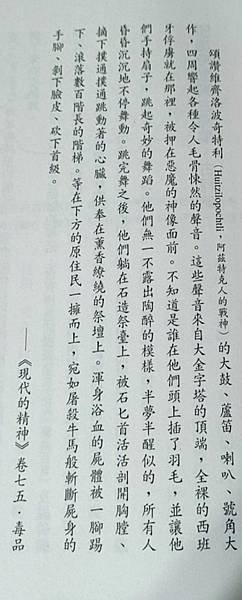 頌讚維齊洛波奇特利（Huitzilopochtli，阿茲特克人的戰神）的大鼓、蘆笛、喇叭、號角大
作，四周響起各種令人毛骨悚然的聲音。這些聲音來自大金字塔的頂端，全裸的西班
牙俘虜就在那裡，被押在惡魔的神像面前。不知道是誰在他們頭上插了羽毛，並讓他
們手持扇子，跳起奇妙的舞蹈。他們無一不露出陶醉的模樣，半夢半醒似的，所有人
昏昏沉沉地不停舞動。跳完舞之後，他們躺在石造祭臺上，被石匕首活活剖開胸膛、
摘下撲通撲通跳動著的心臟，供奉在薰香繚繞的祭壇上。渾身浴血的屍體被一腳踢
下、滾落數百階長的階梯。等在下方的原住民一擁而上，宛如屠殺牛馬般斬斷屍身的
手腳、剝下臉皮、砍下首級。
——《現代的精神》卷七五‧毒品